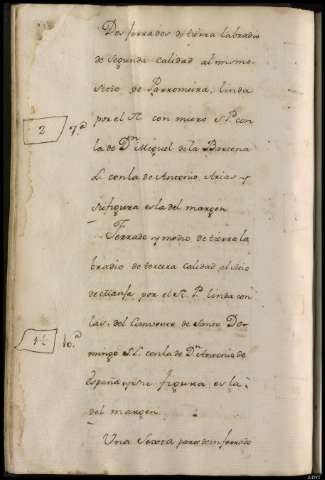 Dos ferrados de tierra labradio
de segunda calidad al mismo
sitio de Parromura, linda
por el N. con muro S. P. con
2 7.ª la de Dn Miguel de la Barcena
L. con la de Antonio Arias y
su figura es la del margen
Ferrado y medio de tierra la
bradio de tercera calidad al sitio
de por el N. P. linda con
las del Convento de Santo Do
1½ 10.ª mingo S. L. con la de Dn Antonio de
España y su figura es la
del margen
Una ferrado